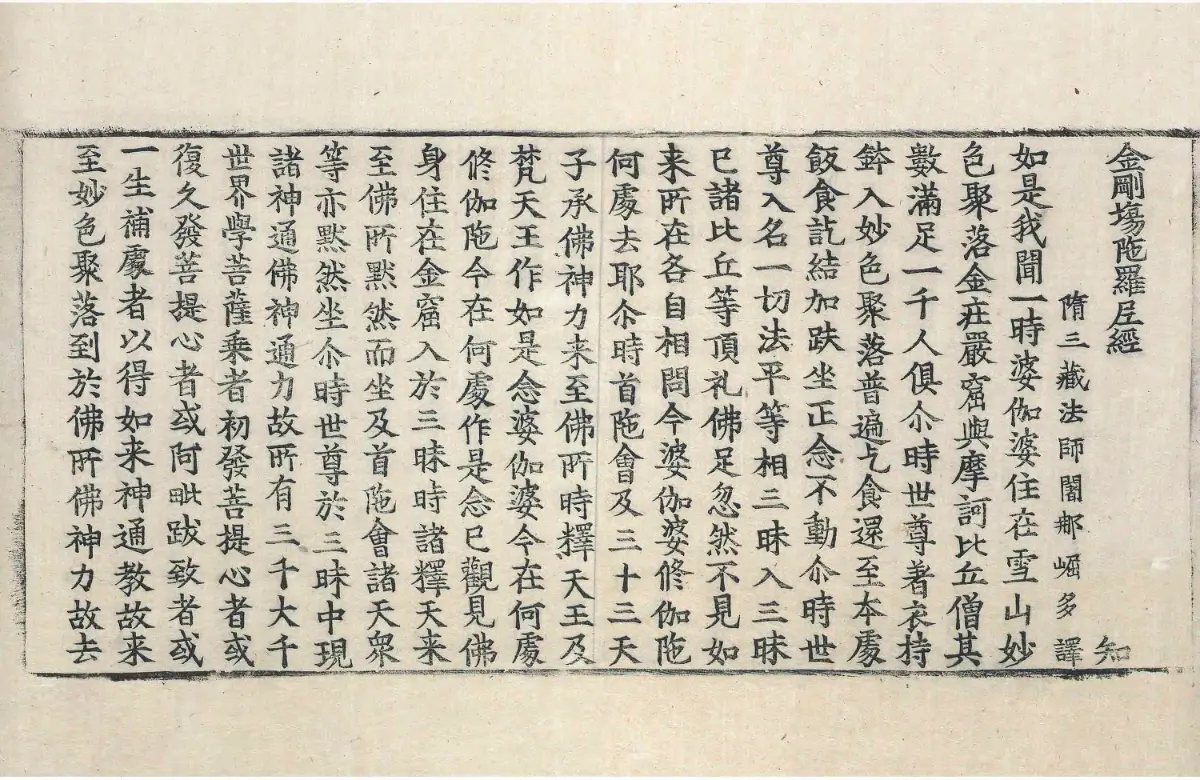 金剛塲陁羅尼經 知
隋三藏法師闍那崛多譯
如是我聞一時婆伽婆住在雪山妙
色聚落金庄嚴窟與摩訶比丘僧其
數滿足一千人俱尒時世尊著衣持
鉢入妙色聚落普遍乞食還至本處
飯食訖結加趺坐正念不動尒時世
尊入名一切法平等相三昧入三昧
已諸比丘等頂礼佛足忽然不見如
来所在各自相問今婆伽婆修伽陁
何處去耶尒時首陁會及三十三天
子承佛神力来至佛所時釋天王及
梵天王作如是念婆伽婆今在何處
修伽陁今在何處作是念已觀見佛
身住在金窟入於三昧時諸釋天来
至佛所黙然而坐及首陁會諸天衆
等亦黙然坐尒時世尊於三昧中現
諸神通佛神通力故所有三千大千
世界學菩薩乘者初發菩提心者或
復久發菩提心者或阿毗跋致者或
一生補處者以得如来神通教故来
至妙色聚落到於佛所佛神力故去